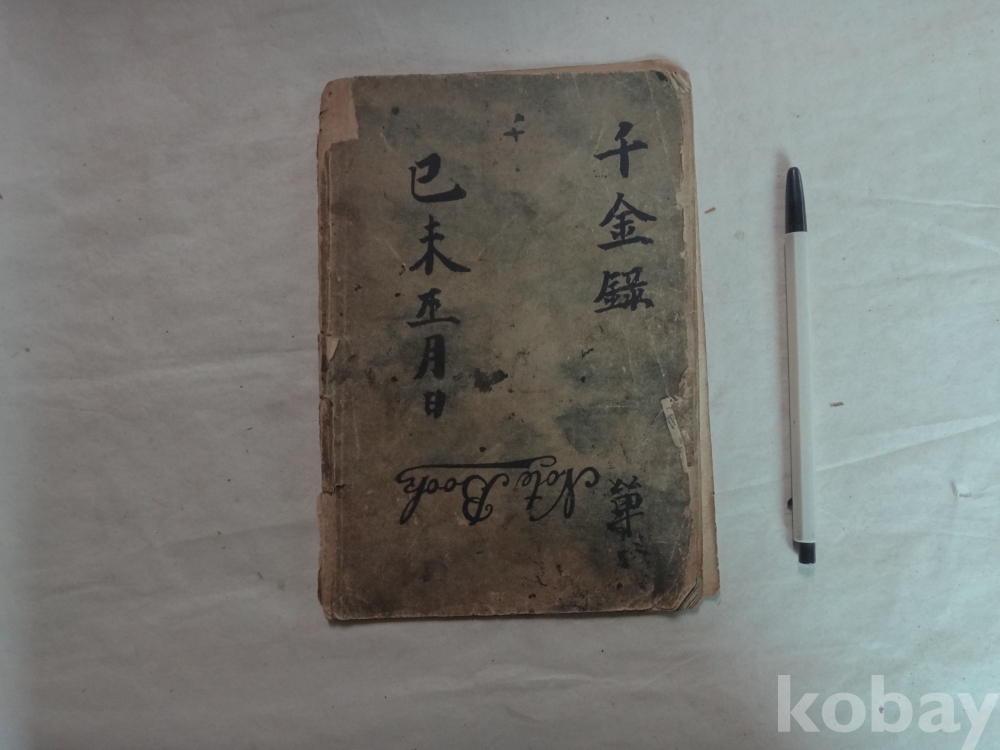 千金錄
千
己未正月日
Note Book
kobay